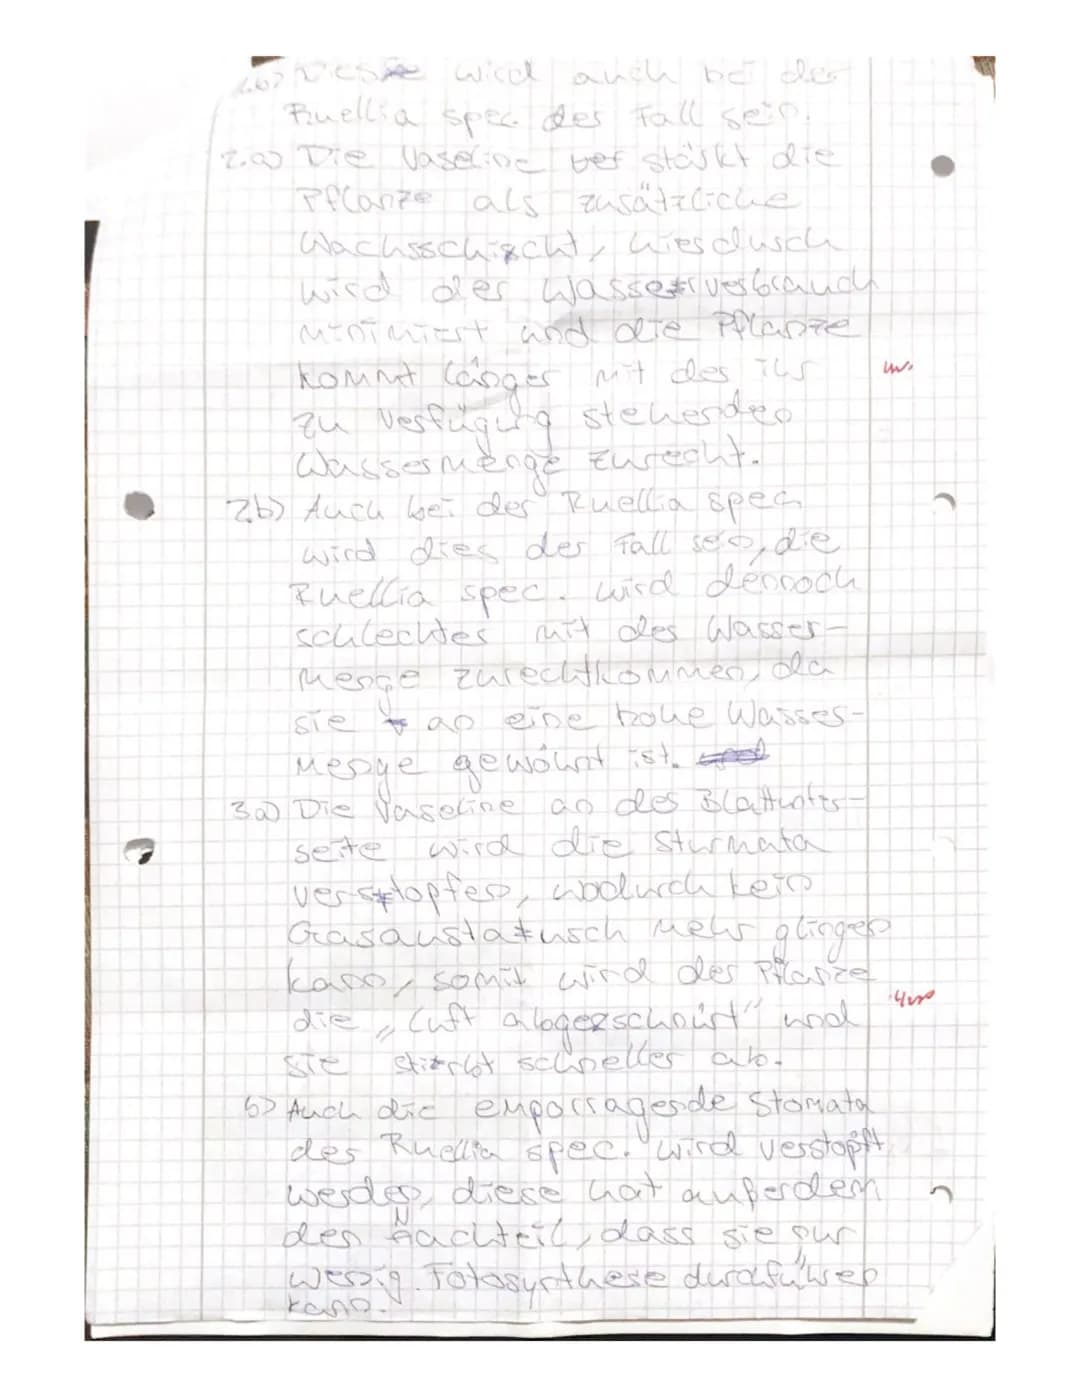 1.b) Dieses wird auch bei der
Ruellia spec. der Fall sein.
2.a) Die Vaseline verstärkt die
Pflanze als zusätzliche
Wachsschischt, hierdurch
wird der Wasserverbrauch
minimiert und die Pflanze
kommt länger mit der ihr
zu Verfügung stehenden
Wassermenge zurecht.
2.b) Auch bei der Ruellia spec.
wird dies der Fall sein, die
Ruellia spec. wird dennoch
schlechter mit der Wasser-
menge zurechtkommen, da
sie an eine hohe Wasser-
menge gewöhnt ist.
3a) Die Vaseline an der Blattunter-
seite wird die Sturmata
verstopfen, wodurch kein
Gasaustausch mehr glingen
kann, somit wird der Pflanze
die „Luft abgeschnürt" und
sie stirbt schneller ab.
b) Auch die emporragende Stomata
der Ruellia spec. wird verstopft
werden, diese hat außerdem
den Nachteil, dass sie nur
wenig Fotosynthese durchführen
kann.